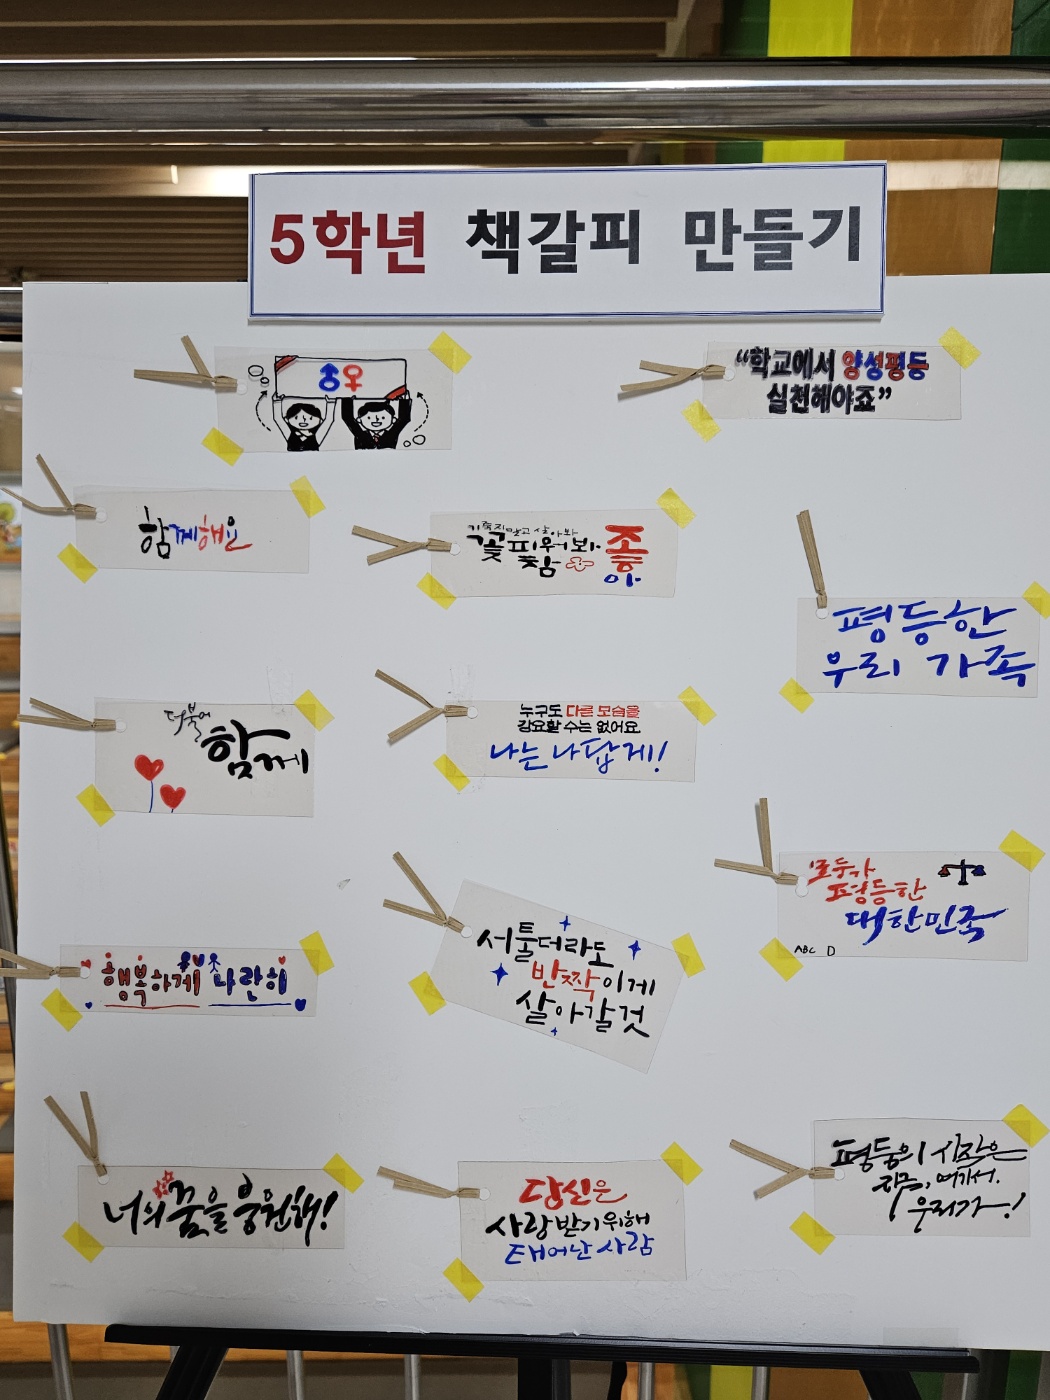 5학년 책갈피 만들기
“학교에서 양성평등
실천해야죠”
함께해요
기죽지말고 살아봐
꽃피워봐
참
좋아
평등한
우리 가족
더불어
함께
누구도 다른 모습을
강요할 수는 없어요
나는 나답게!
모두가
평등한
대한민국
ABC D
행복하게 나란히
서툴더라도
반짝이게
살아갈것
너의 꿈을 응원해!
당신은
사랑받기위해
태어난 사람
평등의 시작은
지금, 여기서.
우리가!